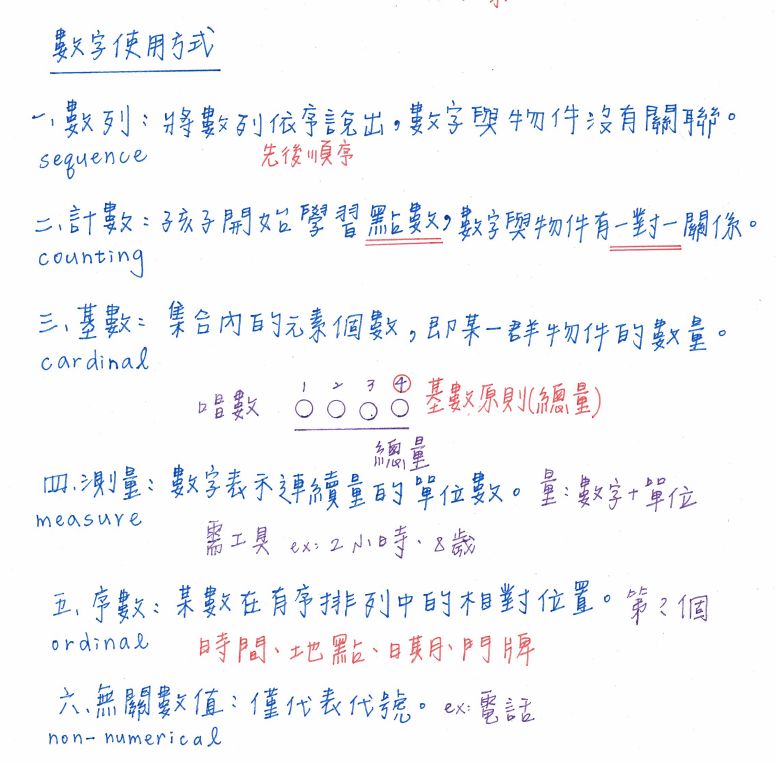 數字使用方式
一、數列：將數列依序說出，數字與物件沒有關聯。
sequence 先後順序
二、計數：孩子開始學習點數，數字與物件有一對一關係。
counting
三、基數：集合內的元素個數，即某一群物件的數量。
cardinal
1 2 3 4
唱數 基數原則(總量)
總量
四、測量：數字表示連續量的單位數。量：數字+單位
measure
需工具 ex: 2小時、8歲
五、序數：某數在有序排列中的相對位置。第?個
ordinal 時間、地點、日期、門牌
六、無關數值：僅代表代號。ex: 電話
non-numerical